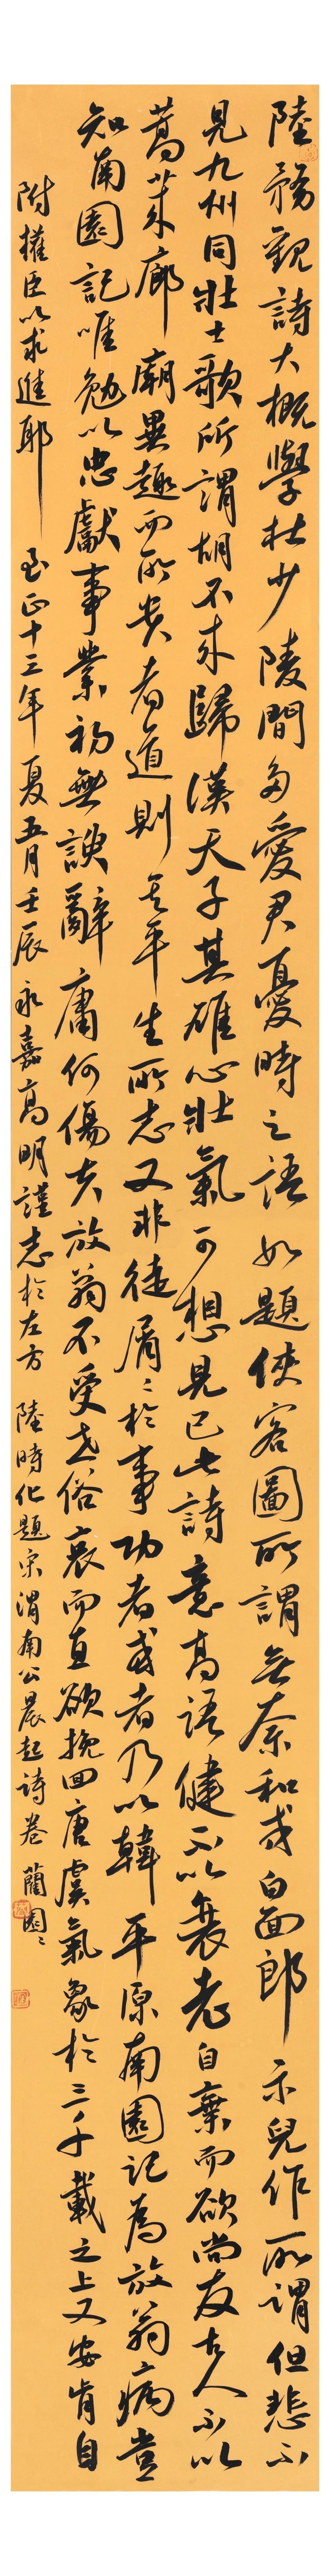 陸務觀詩大概學杜少陵間多愛君憂時之語如題俠客圖所謂無奈和戎白面郎示兒作所謂但悲不
見九州同壯士歌所謂胡不來歸漢天子其雄心壯氣可想見已此詩意高語健不以衰老自棄而欲尚友古人不以
蒿萊廊廟異趣而所貴者道則其平生所志又非徒屑〻於事功者或者乃以韓平原南園記為放翁病豈
知南園記唯勉以忠獻事業初無諛辭庸何傷夫放翁不受世俗哀而直欲挽回唐虞氣象於三千載之上又安肯自
附權臣以求進耶 至正十三年夏五月壬辰永嘉高明謹志於左方 陸時化題宋渭南公晨起詩卷 蘭園〻